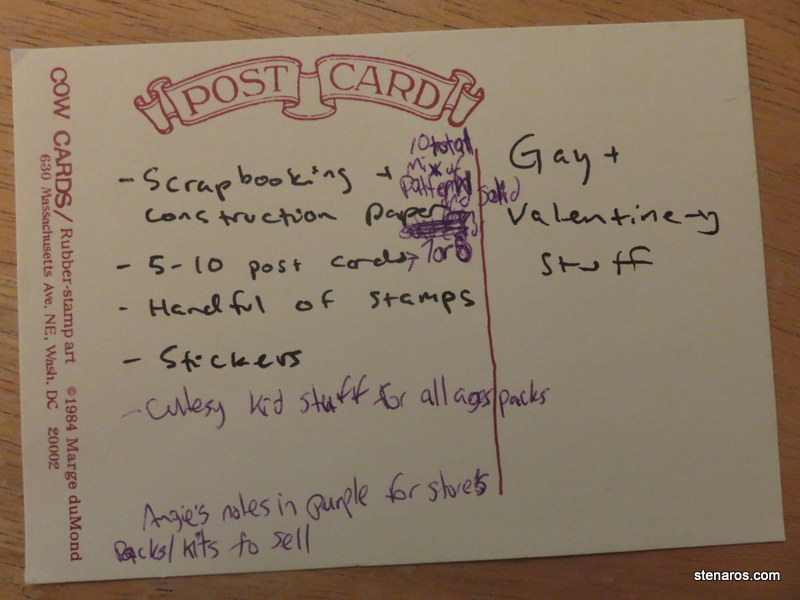 POST CARD
COW CARDS/ Rubber-stamp art ©1984 Marge duMond
630 Massachusetts Ave, NE, Wash, DC 20002
- Scrapbooking +
construction paper
10 total
mix of
patterned
and solid
- 5-10 post cards → 7 or 8
- Handful of stamps
- Stickers
- Cutesy kid stuff for all ages packs
Angie's notes in purple for store's
packs/kits to sell
Gay +
Valentine-y
stuff
stenaros.com